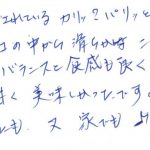 されている カリッ?パリッと
コの中から滑らかな
バランスと食感も良く
味く美味しかったです。
も。又家でも